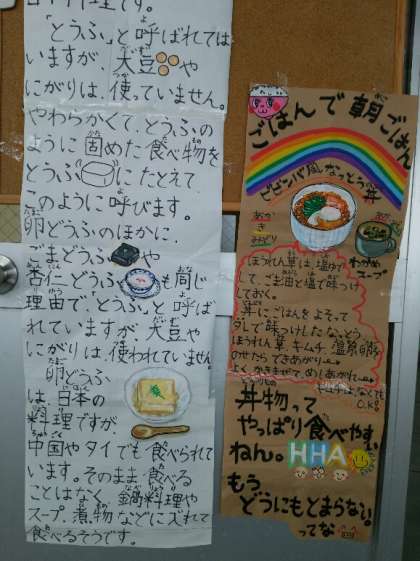 「とうふ」と呼ばれては
いますが、大豆や
にがりは、使っていません。
やわらかくて、とうふの
ように固めた食べ物を
とうふにたとえて
このように呼びます。
卵どうふのほかに、
ごまどうふや
杏仁どうふも同じ
理由で「とうふ」と呼ば
れていますが、大豆や
にがりは、使われていません。
卵どうふ
は、日本の
料理ですが
中国やタイでも食べられて
います。そのまま、食べる
ことはなく、鍋料理や
スープ、煮物などに入れて
食べるそうです。
ごはんで朝ごはん
ビビンバ風なっとう丼
あか
き
みどり
わかめ
スープ
ほうれん草は、塩ゆで
して、ごま油と塩で味つけ
しておく。
丼にごはんをよそって
タレで味つけしたなっとう
ほうれん草、キムチ、温泉卵を
のせたらできあがり
よくかきまぜて、めしあがれ
丼物って
やっぱり食べやす。
ねん。
HHA
もう
どうにもとまらない。
ってな